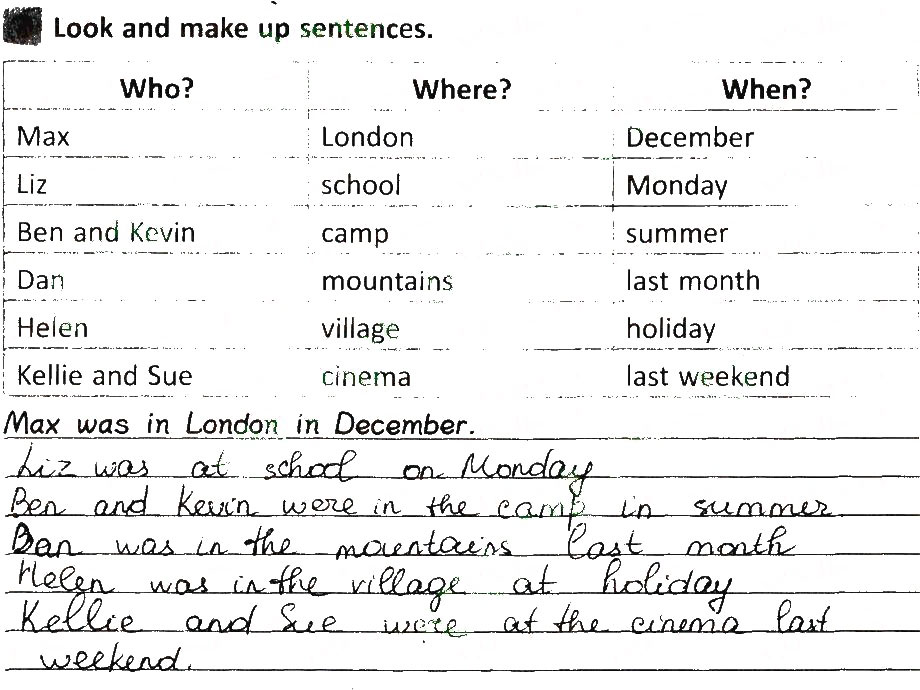 Look and make up sentences.
Who? Where? When?
Max London December
Liz school Monday
Ben and Kevin camp summer
Dan mountains last month
Helen village holiday
Kellie and Sue cinema last weekend
Max was in London in December.
Liz was at school on Monday
Ben and Kevin were in the camp in summer
Dan was in the mountains last month
Helen was in the village at holiday
Kellie and Sue were at the cinema last
weekend.